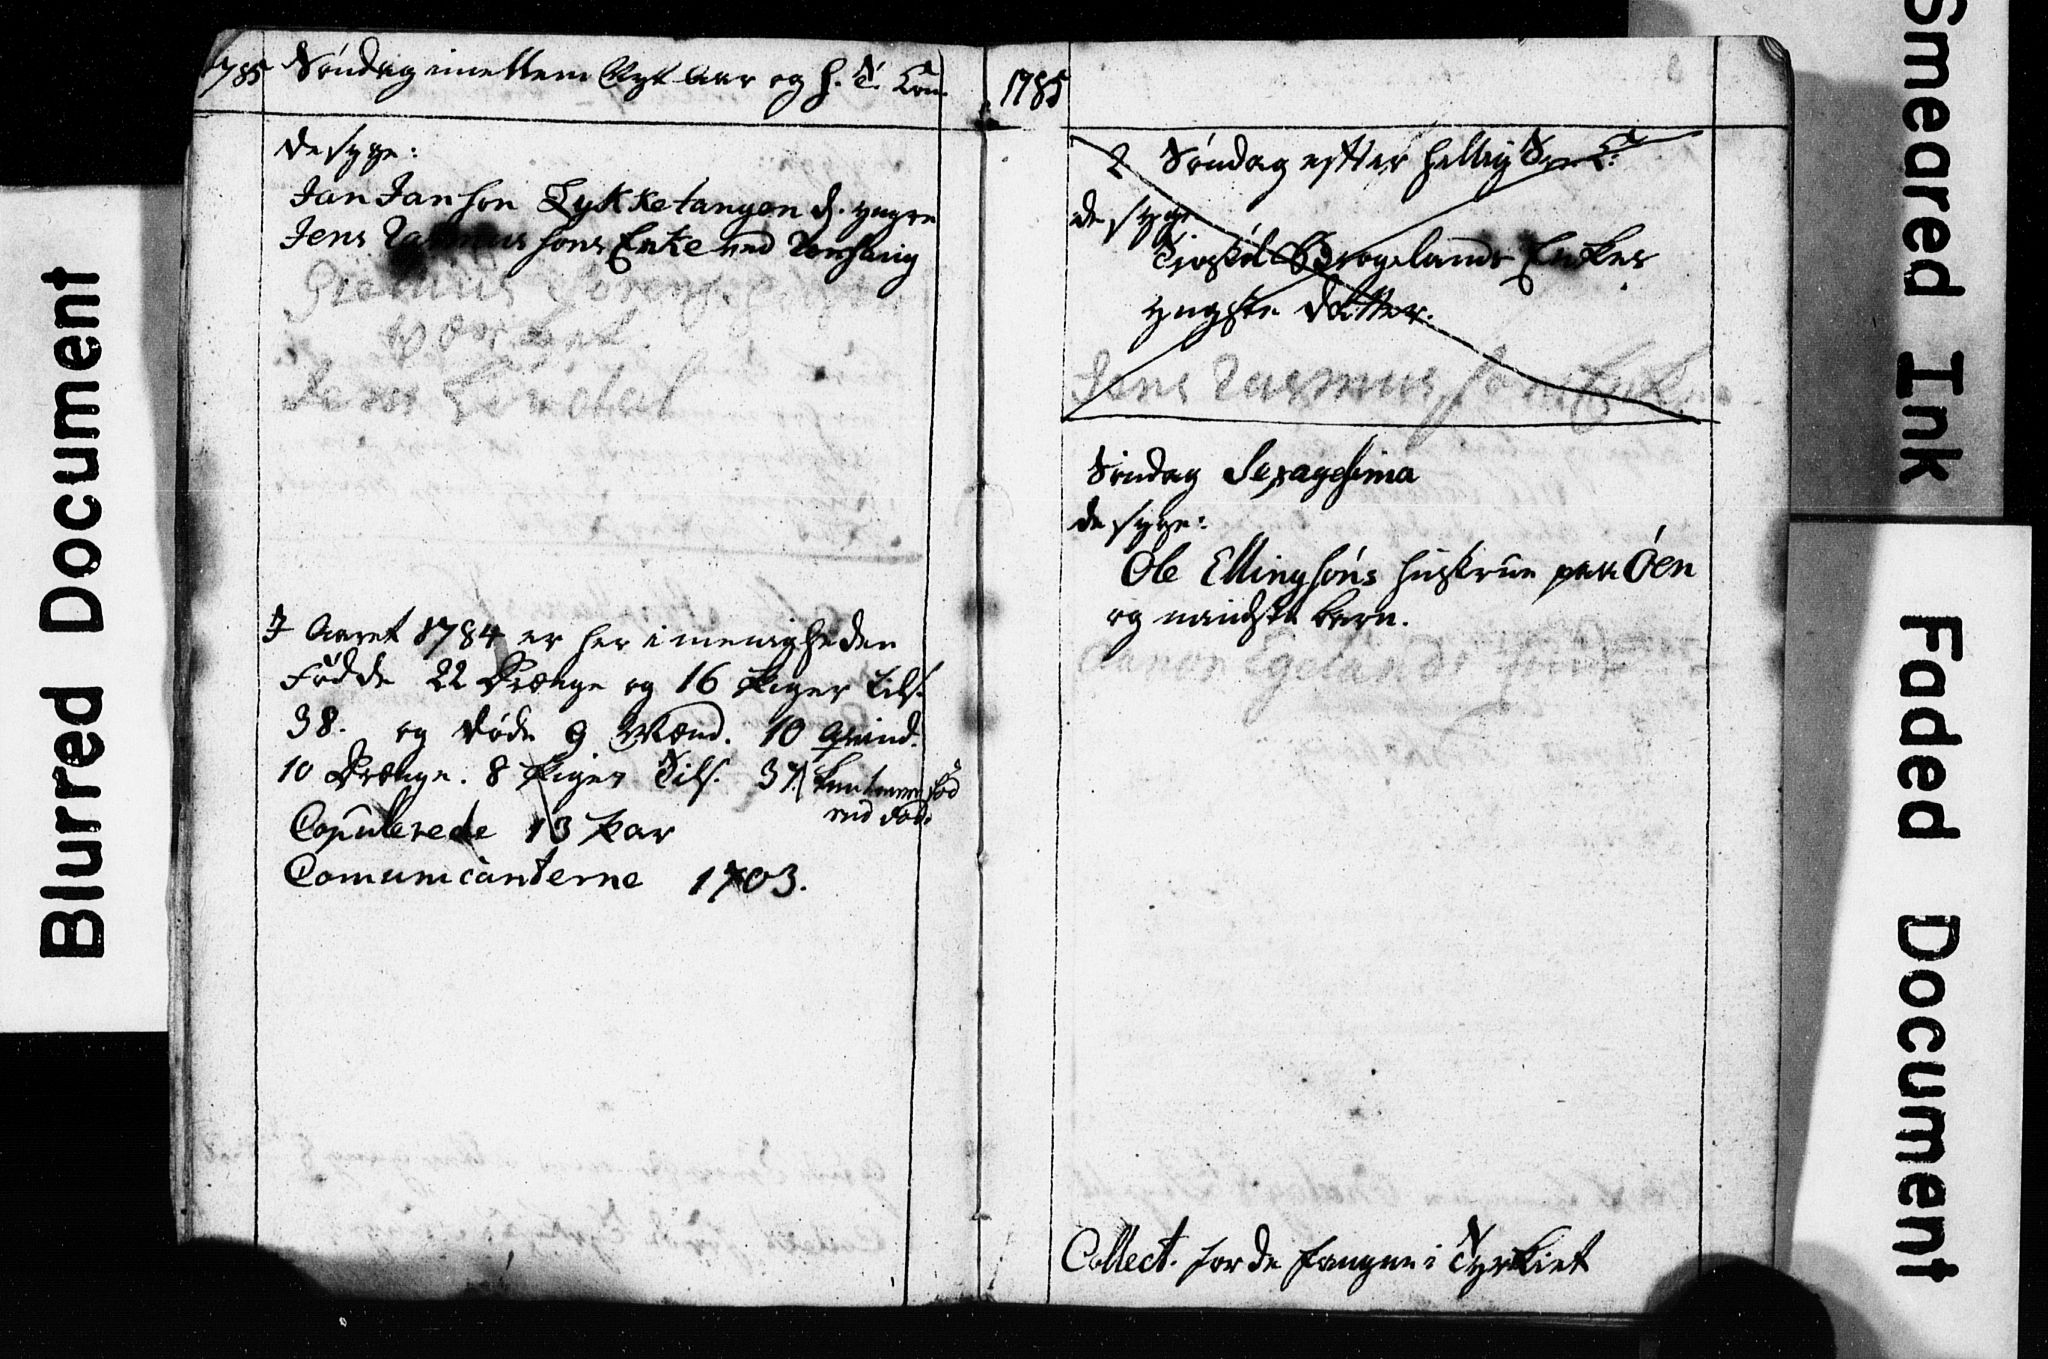 Blurred Document
1785 Søndag imellem Nyt Aar og H. 3 Kon.
de syge:
Jan Janson Lykketangen d. yngre
Jens Rasmussøns Enke ved
Sørens
Jens
I Aaret 1784 er her i menigheden
Fødde 22 Drænge og 16 Piger tils.
38. og døde 9 Mænd. 10 Qvind.
10 Drænge. 8 Piger Tils. 37. een fød
end død.
Copulerede 13 Par
Comunicanterne 1703.
1785
2 Søndag efter Hellig 3 K:
de syge
Enkes
yngste Datter.
Jens Rasmussøns Enke
Søndag Sexagesima
de syge:
Ole Ellingsøns Hustrue paa Öen
og mindste barn.
Aanon Egelands
Collect. for de fangne i Tyrkiet
Smeared Ink
Faded Document